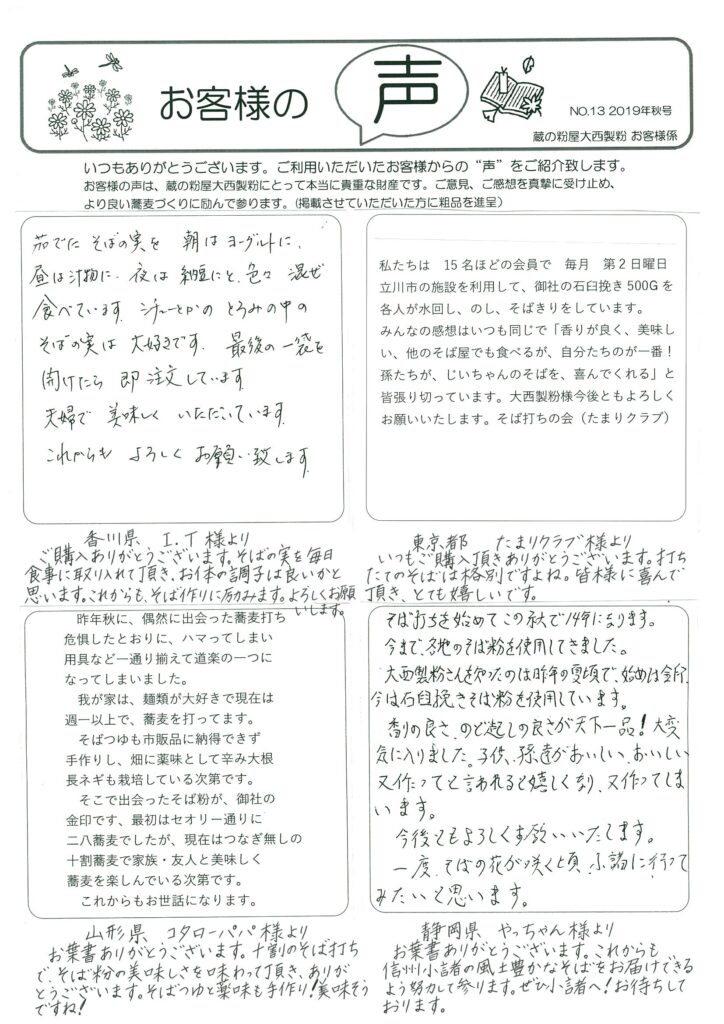 お客様の 声
NO.13 2019年秋号
蔵の粉屋大西製粉 お客様係
いつもありがとうございます。ご利用いただいたお客様からの“声”をご紹介致します。
お客様の声は、蔵の粉屋大西製粉にとって本当に貴重な財産です。ご意見、ご感想を真摯に受け止め、
より良い蕎麦づくりに励んで参ります。(掲載させていただいた方に粗品を進呈)
茹でた そばの実を 朝は ヨーグルトに、
昼は汁物に、夜は 納豆にと、色々 混ぜ
食べています。シチューとかの とろみの中の
そばの実は 大好きです。最後の一袋を
開けたら 即 注文しています。
夫婦で 美味しく いただいています。
これからも よろしく お願い致します。
香川県 I.T 様より
ご購入ありがとうございます。そばの実を毎日
食事に取り入れて頂き、お体の調子は良いかと
思います。これからも、そば作りに励みます。よろしくお願
いします。
私たちは 15名ほどの会員で 毎月 第2日曜日
立川市の施設を利用して、御社の石臼挽き500Gを
各人が水回し、のし、そばきりをしています。
みんなの感想はいつも同じで「香りが良く、美味し
い、他のそば屋でも食べるが、自分たちのが一番!
孫たちが、じいちゃんのそばを、喜んでくれる」と
皆張り切っています。大西製粉様今後ともよろしく
お願いいたします。そば打ちの会(たまりクラブ)
東京都 たまりクラブ様より
いつもご購入頂きありがとうございます。打ち
たてのそばは格別ですよね。皆様に喜んで
頂き、とても嬉しいです。
昨年秋に、偶然に出会った蕎麦打ち
危惧したとおりに、ハマってしまい
用具など一通り揃えて道楽の一つに
なってしまいました。
我が家は、麺類が大好きで現在は
週一以上で、蕎麦を打ってます。
そばつゆも市販品に納得できず
手作りし、畑に薬味として辛み大根
長ネギも栽培している次第です。
そこで出会ったそば粉が、御社の
金印です、最初はセオリー通りに
二八蕎麦でしたが、現在はつなぎ無しの
十割蕎麦で家族・友人と美味しく
蕎麦を楽しんでいる次第です。
これからもお世話になります。
山形県 コタローパパ様より
お葉書ありがとうございます。十割のそば打ち
で、そば粉の美味しさを味わって頂き、ありが
とうございます。そばつゆと薬味も手作り!美味そう
ですね!
そば打ちを始めて この秋で14年になります。
今まで、各地のそば粉を使用してきました。
大西製粉さんを知ったのは昨年の夏頃で、始めは金印、
今は石臼挽きそば粉を使用しています。
香りの良さ、のど越しの良さが天下一品!大変
気に入りました。子供、孫達がおいしい、おいしい
又作ってと言われると嬉しくなり、又作ってしま
います。
今後ともよろしくお願いいたします。
一度、そばの花が咲く頃 小諸に行って
みたいと思います。
静岡県 やっちゃん様より
お葉書ありがとうございます。これからも
信州小諸の風土豊かなそばをお届けできる
よう努力して参ります。ぜひ小諸へ!お待ちして
おります。